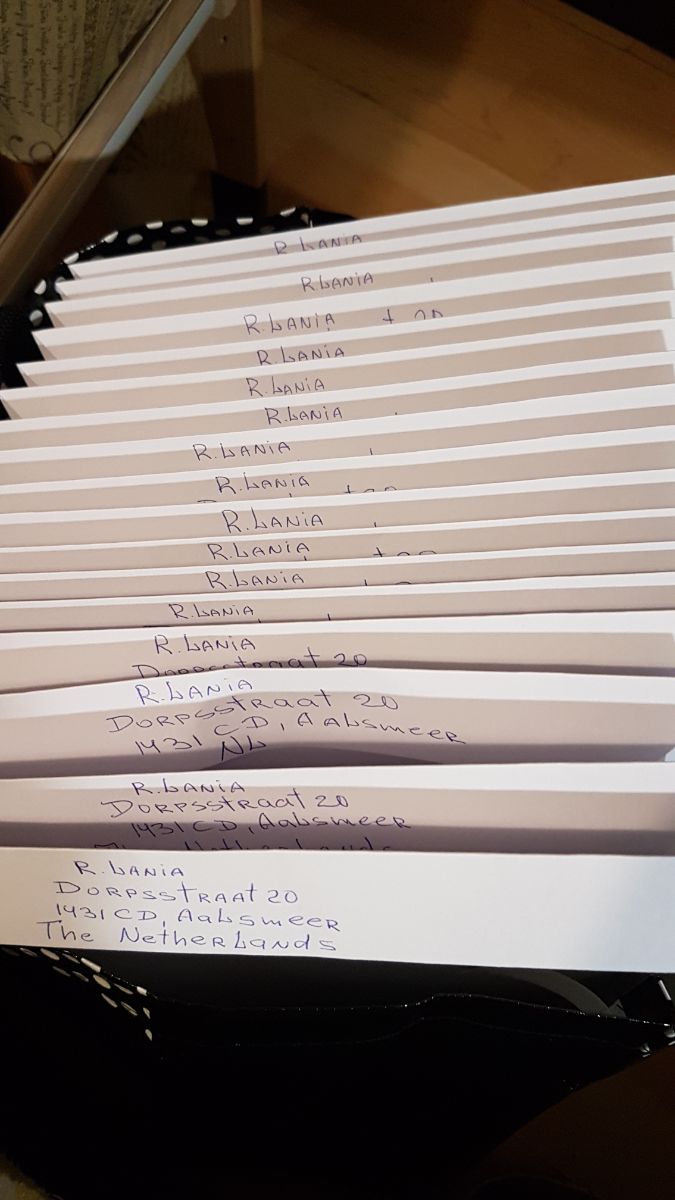 R LANIA
R LANIA
R LANIA
R. LANIA
R. LANIA
R. LANIA
R. LANIA
R. LANIA
R. LANIA
R. LANIA
R. LANIA
R. LANIA
R. LANIA
Dorpsstraat 20
R. LANIA
DORPSSTRAAT 20
1431 CD, AALSMEER
NL
R. LANIA
DORPSSTRAAT 20
1431 CD, AALSMEER
The Netherlands
R. LANIA
DORPSSTRAAT 20
1431 CD, AALSMEER
The NetherLands